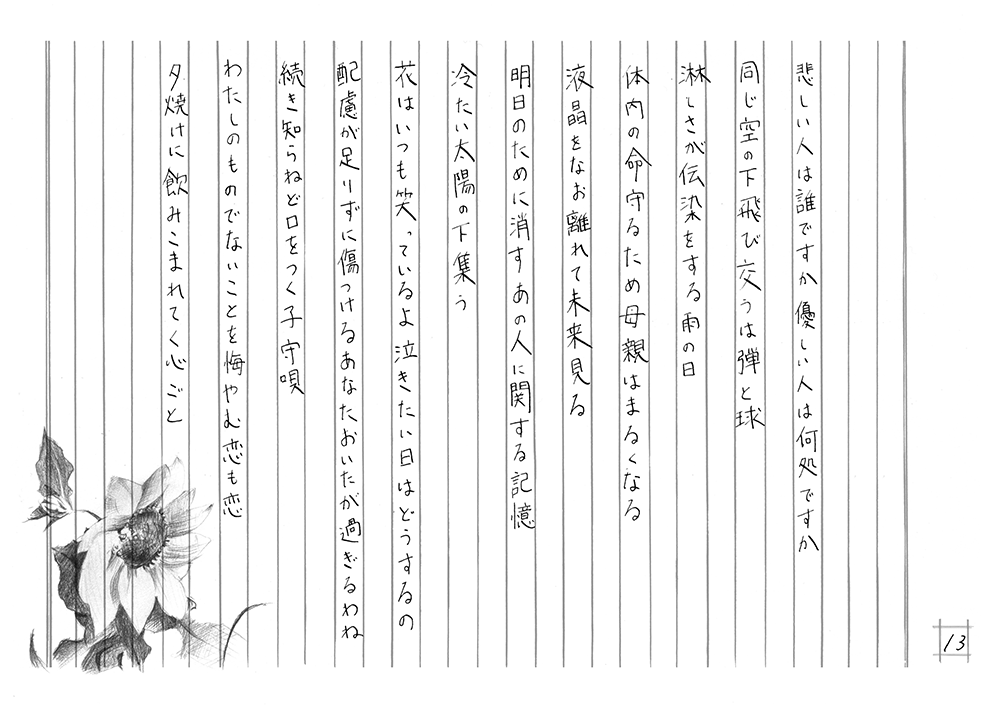 悲しい人は誰ですか優しい人は何処ですか
同じ空の下飛び交うは弾と球
淋しさが伝染をする雨の日
体内の命守るため母親はまるくなる
液晶をなお離れて未来見る
明日のために消すあの人に関する記憶
冷たい太陽の下集う
花はいつも笑っているよ泣きたい日はどうするの
配慮が足りずに傷つけるあなたおいたが過ぎるわね
続き知らねど口をつく子守唄
わたしのものでないことを悔やむ恋も恋
夕焼けに飲みこまれてく心ごと
13